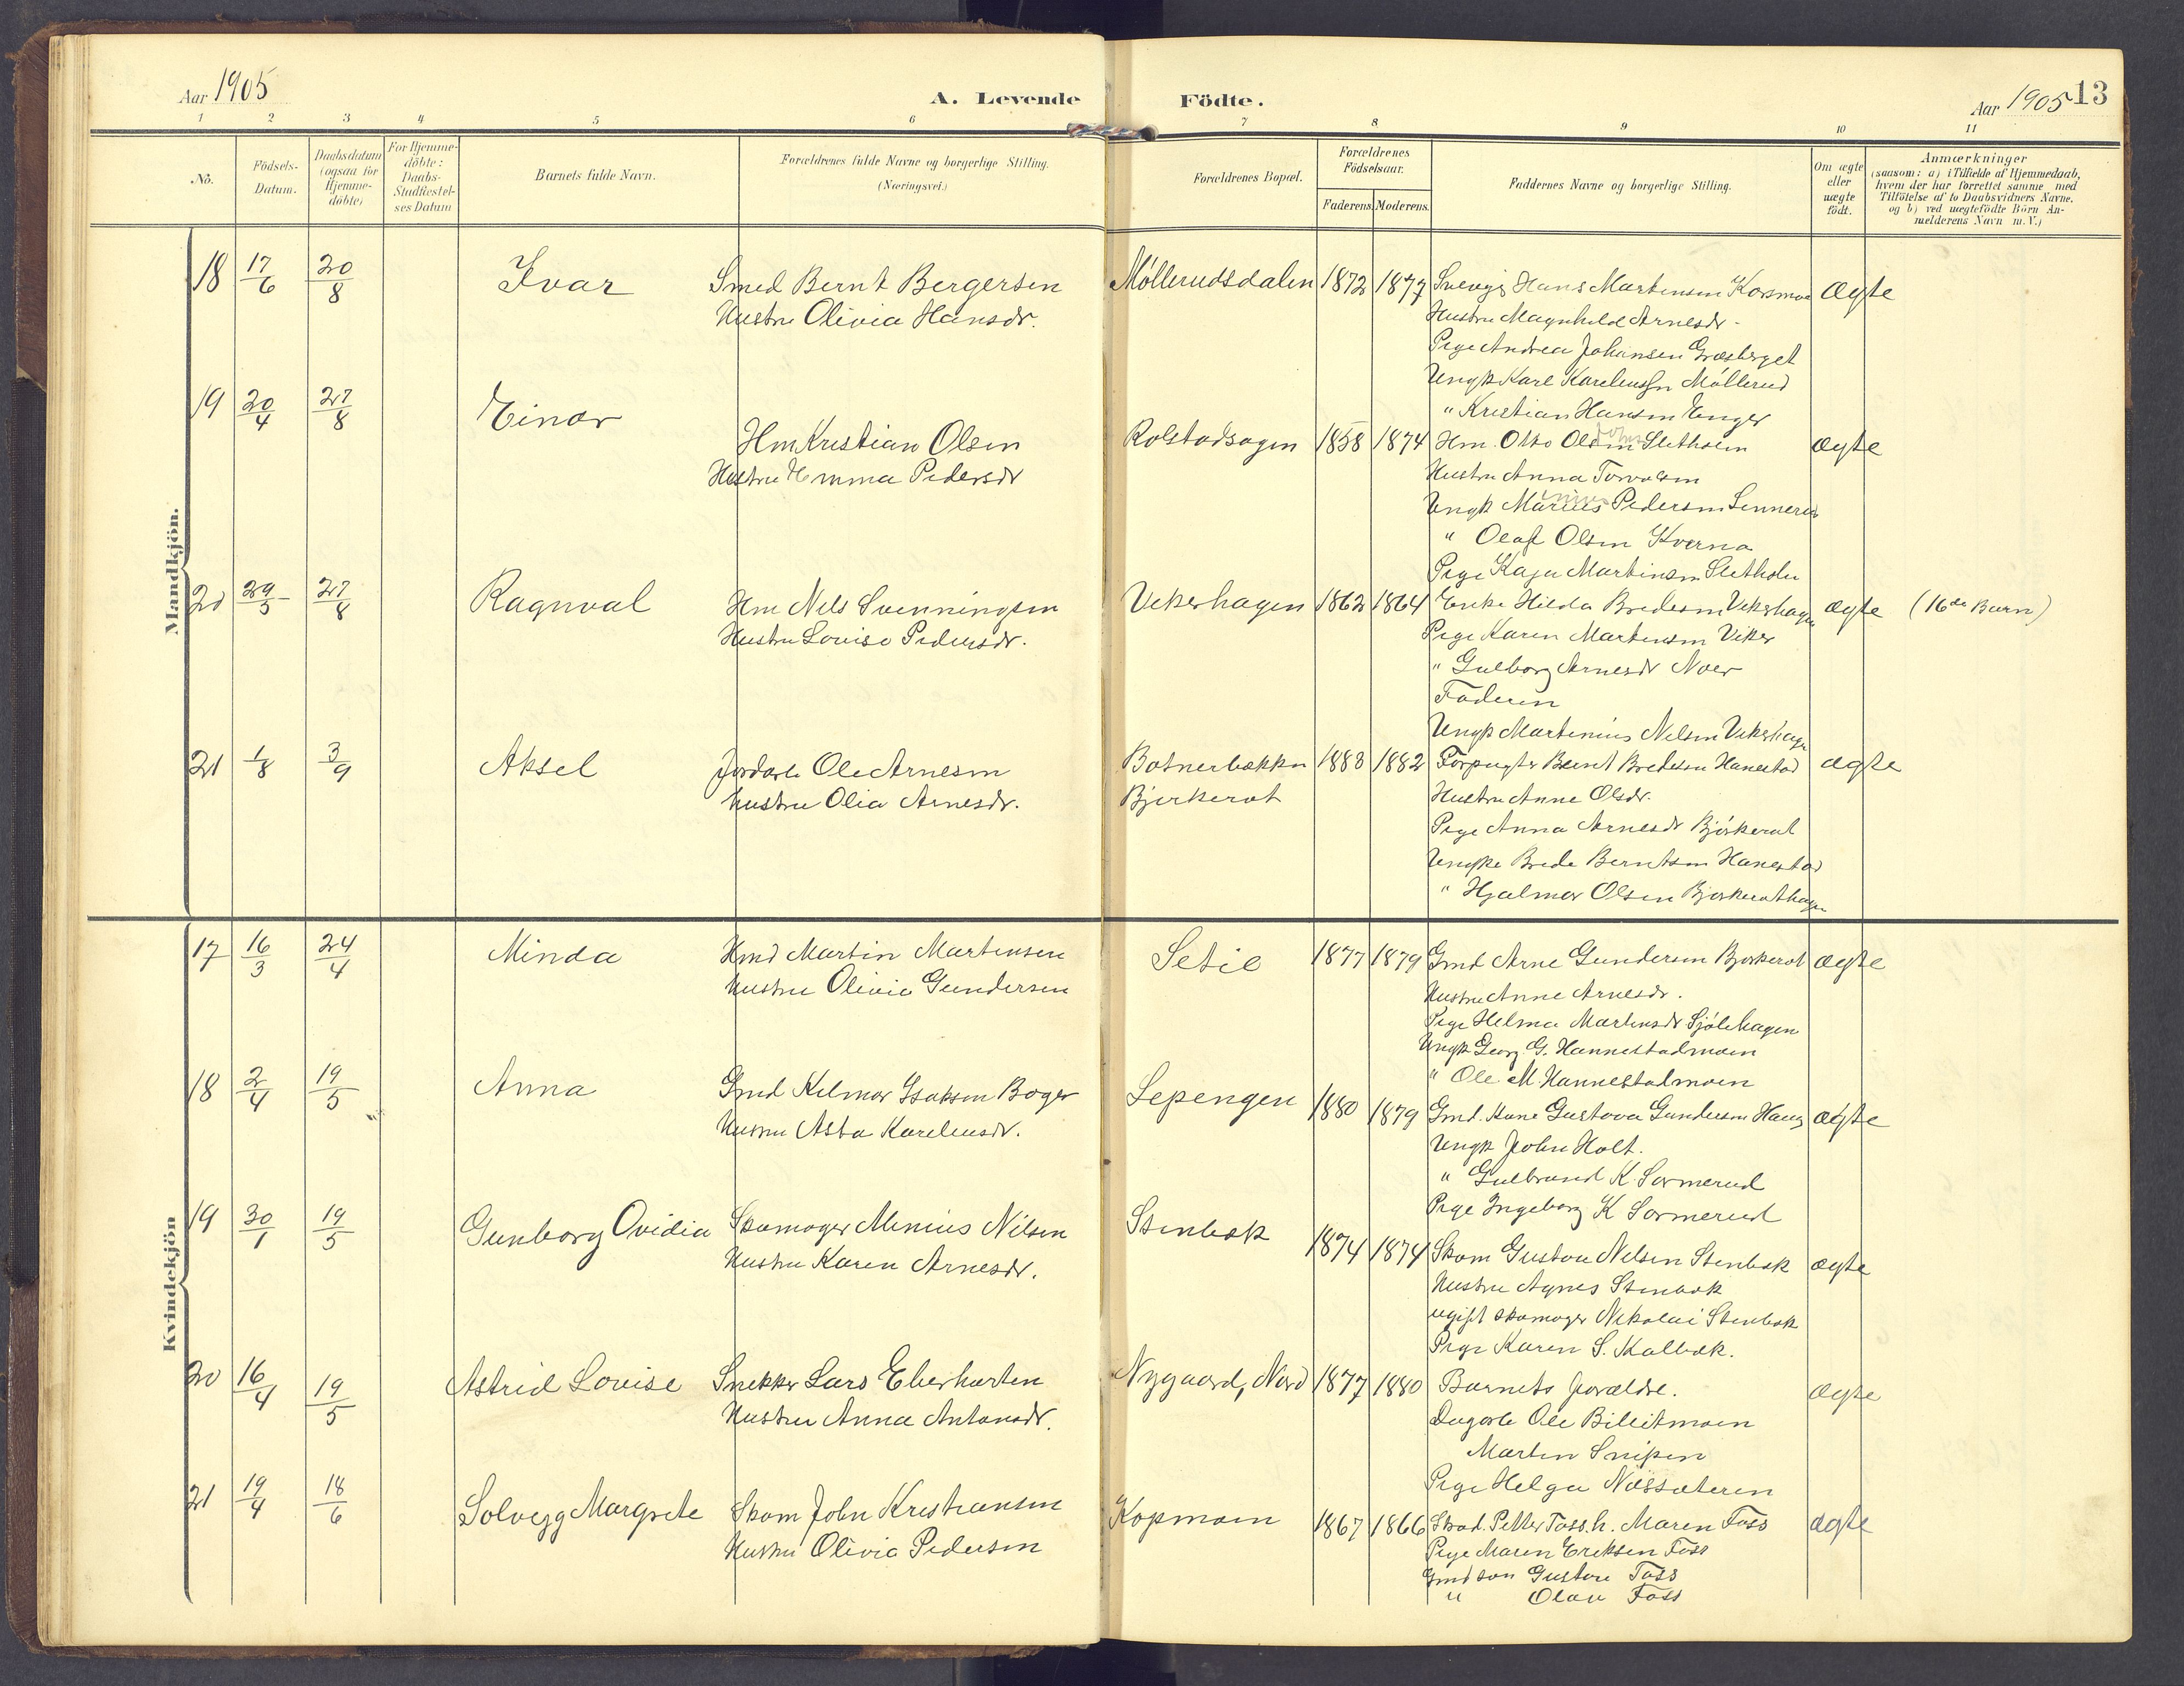 Aar 1905
A. Levende Födte.
Aar 1905 13
1 2 3 4 5 6 7 8 9 10 11
No.
Födsels-Datum.
Daabsdatum (ogsaa for Hjemme-döbte)
For Hjemme-döbte: Daabs-Stadfæstel-ses Datum
Barnets fulde Navn.
Forældrenes fulde Navne og borgerlige Stilling. (Næringsvei.)
Forældrenes Bopæl.
Forældrenes Födselsaar.
Faderens. Moderens.
Faddernes Navne og borgerlige Stilling.
Om ægte eller uægte födt.
Anmærkninger
(saasom: a) i Tilfælde af Hjemmedaab,
hvem der har forrettet samme, med
Tilföielse af to Daabsvidners Navne.
og b) ved uægtefödte Börn An-
melderens Navn m. V.)
Mandkjön.
18 17/6 20/8 Ivar Smed Bernt Bergersen Møllerudsdalen 1872 1877 Hans Martinsen ægte
Hustru Olivia Hansdr. Hustru Magnhild Arnesdr
Pige Andrea Johansen Græsberget
Ungk Karl Møllerud
" Kristian Hansen Enger
19 20/4 27/8 Einar Hm Kristian Olsen Rolstadsagen 1858 1874 Hm. Otto Olsen Sletholen ægte
Hustru Emma Pedersdr Hustru Anna Torvalsen
Ungk Marius Pedersen
" Olaf Olsen Kverna
Pige Kaja Martinsen Sletholen
20 29/5 27/8 Ragnval Hm Nils Svenningsen Vikerhagen 1862 1864 Enke Hilda Bredesen Vikerhagen ægte (16de Barn)
Hustru Lovise Pedersdr. Pige Karen Martinsen Viker
" Gulborg Arnesdr Noer
Faderen
Ungk Martinius Nilsen Vikerhagen
21 1/8 3/9 Aksel Jordarb Ole Arnesen Botnerbækken 1883 1882 Forpagter Bernt Bredesen Hanestad ægte
Hustru Olia Arnesdr. Bjerkerot Hustru Anne Olsdr.
Pige Anna Arnesdr Bjørkerot
Ungke Brede Berntsen Hanestad
" Hjalmar Olsen Bjørkerothagen
Kvindekjön
17 16/3 24/4 Minda Hmd Martin Martinsen Setil 1877 1879 Gmd Arne Gundersen Bjørkerot ægte
Hustru Olivia Gundersen Hustru Anne Arnesdr.
Pige Helma Martinsdr Sjölihagen
Ungk Georg G. Hannestadmoen
" Ole M. Hannestadmoen
18 2/4 19/5 Anna Gmd Hilmar Isaksen Boger Sepengen 1880 1879 Gmd. Gustava Gundersen Haug ægte
Hustru Asta Kareliusdr. Ungk John Holt.
" Gulbrand K. Sormerud
Pige Ingeborg K Sormerud
19 30/1 19/5 Gunborg Ovidia Skomager Minius Nilsen Stenbæk 1874 1874 Skom Gustav Nilsen Stenbæk ægte
Hustru Karen Arnesdr. Hustru Agnes Stenbæk
ugift skomager Nikolai Stenbæk
Pige Karen S. Kalbæk.
20 16/4 19/5 Astrid Lovise Snekker Lars Eberharten Nygaard, Nord 1877 1880 Barnets forældre. ægte
Hustru Anna Antonsdr. Dagarb Ole Billitmoen
Martin Snipen
Pige Helga Næssæteren
21 19/4 18/6 Solveyg Margrete Skom John Kristiansen Kopmoen 1867 1866 Petter Foss. h. Maren Foss ægte
Hustru Olivia Pedersen Pige Maren Eriksen Foss
Gmd søn Gustav Foss
" Olav Foss